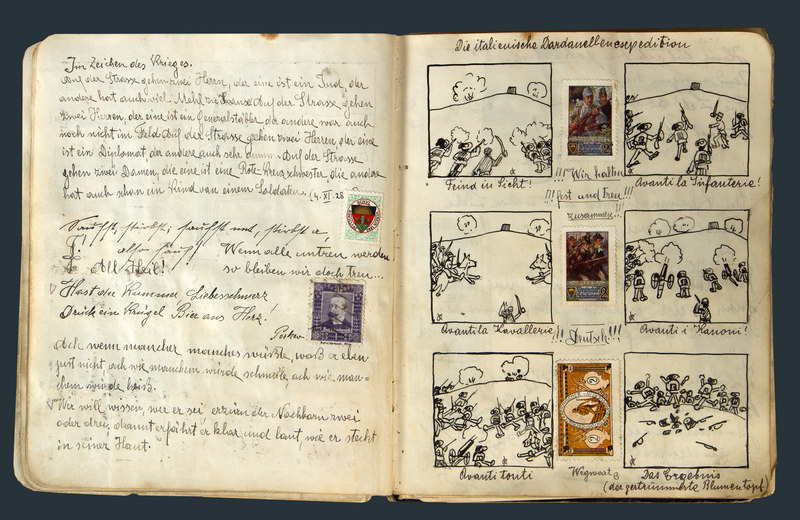 Im Zeichen des Krieges.
Auf der Strasse gehen zwei Herrn, der eine ist ein Jud, der
andere hat auch viel Mehl zu Hause. Auf der Strasse gehen
zwei Herren, der eine ist ein Generalstäbler da andere war auch
noch nicht im Feld. Auf der Strasse gehen zwei Herren der eine
ist ein Diplomat der andere auch sehr dumm. Auf der Strasse
gehen zwei Damen, die eine ist eine Rote Kreuzschwester, die andere
hat auch schon ein Kind von einem Soldaten. (4. XI. 28
Saufst, stirbst, saufst net, stirbst a,
also sauf!
Wenn alle untreu werden
All Heil!
so bleiben wir doch treu...
Hast du Kummer Liebesschmerz
Drück ein Krügel Bier ans Herz!
Ach wenn mancher manches wüßte,
mancher
würde
Wir will wissen wer er sei
der Nachbarn zwei
oder drei, dann erfährt er klar und laut, wie er steckt
in seiner Haut."
Die italienische Dardanellenexpedition
Feind in Sicht!
!!! Wir halten
Avanti la Infanterie!
!!! fest und treu!!!
zusammen...
Avanti la Kavallerie
!!! Deutsch!!!
Avanti i Kanoni!
Avanti touti
Wegwart
Das Ergebnis
(der zertrümmerte Blumentopf)